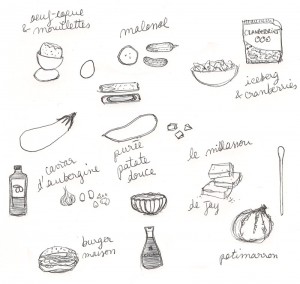 oeuf-coque
& mouillettes
malossol
CRANBERRIES
iceberg
& cranberries
caviar
d'aubergine
purée
patate
douce
le millassou
de Jay
burger
maison
potimarron